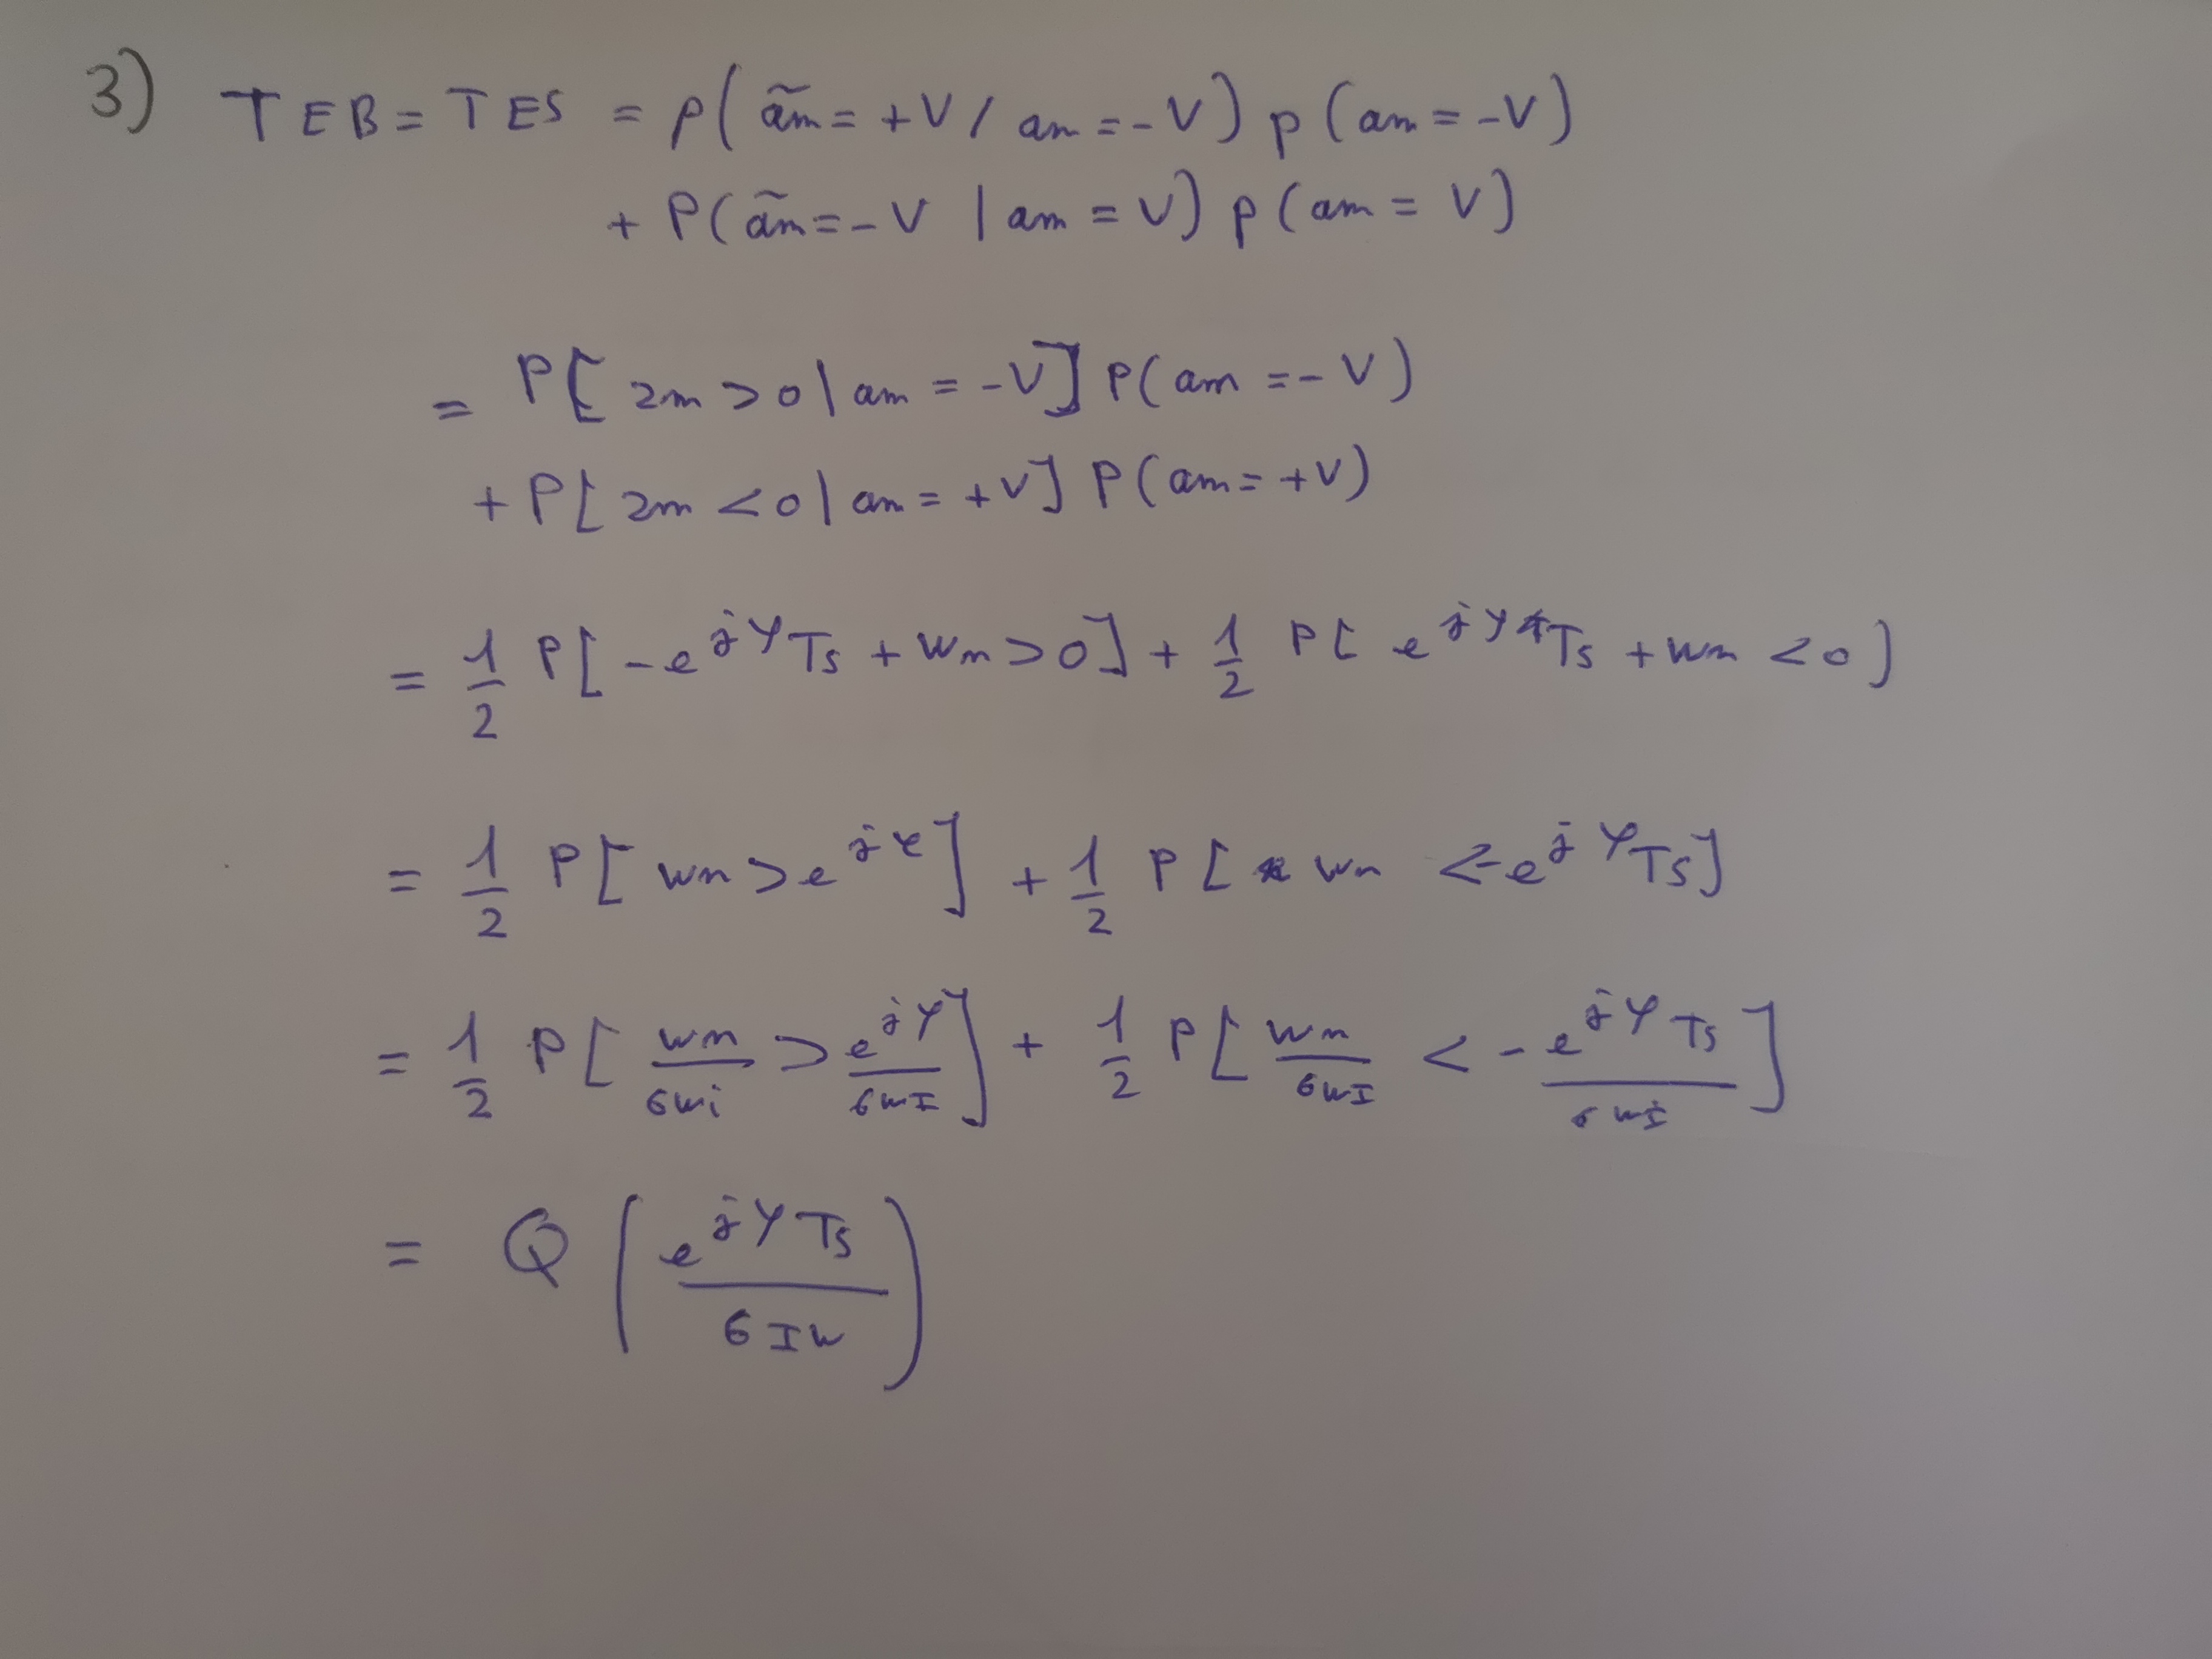 3) TEB = TES = P(ãm = +V / am = -V) p(am = -V)
+ P(ãm = -V | am = V) p(am = V)
= P[zm > 0 | am = -V] P(am = -V)
+ P[zm < 0 | am = +V] P(am = +V)
= 1/2 P[-e^{jφ} Ts + wm > 0] + 1/2 P[e^{jφ} Ts + wm < 0]
= 1/2 P[wm > e^{jφ}] + 1/2 P[wm < -e^{jφ} Ts]
= 1/2 P[wm/σwi > e^{jφ}/σwI] + 1/2 P[wm/σwI < -e^{jφ} Ts/σwI]
= Q(e^{jφ} Ts/σIw)